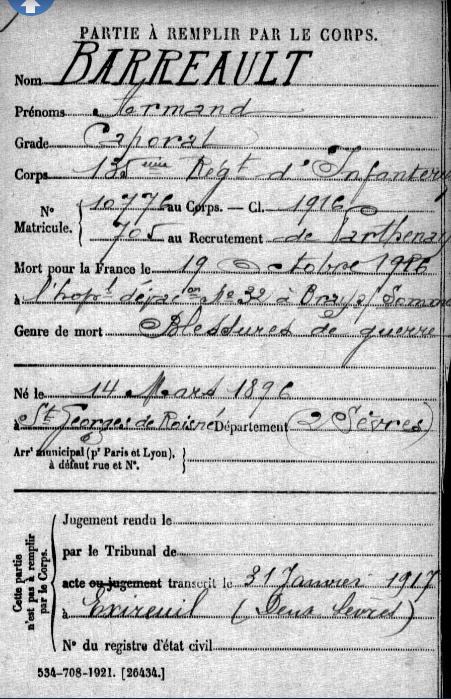 PARTIE À REMPLIR PAR LE CORPS.
Nom BARREAULT
Prénoms Armand
Grade Caporal
Corps 135ème Régt d'Infanterie
N° Matricule. { 10776 au Corps. — Cl. 1916
705 au Recrutement de Parthenay
Mort pour la France le 19 Octobre 1916
à l'hopt d'évacon No 32 à Bray s/ Somme
Genre de mort Blessures de guerre
Né le 14 Mars 1896
à St Georges de Roisné Département (2 Sèvres)
Arrt municipal (pr Paris et Lyon), à défaut rue et N°. }
Cette partie n'est pas à remplir par le Corps.
Jugement rendu le
par le Tribunal de
acte ou jugement transcrit le 31 Janvier 1917
à Exireuil (Deux Sevres)
N° du registre d'état civil
534-708-1921. [26434.]